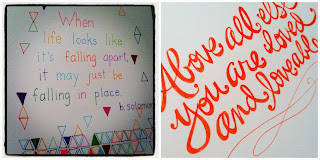 When
life looks like
it's falling apart,
it may just be
falling in place.
b. solomon
Above all else
you are loved
and loveable